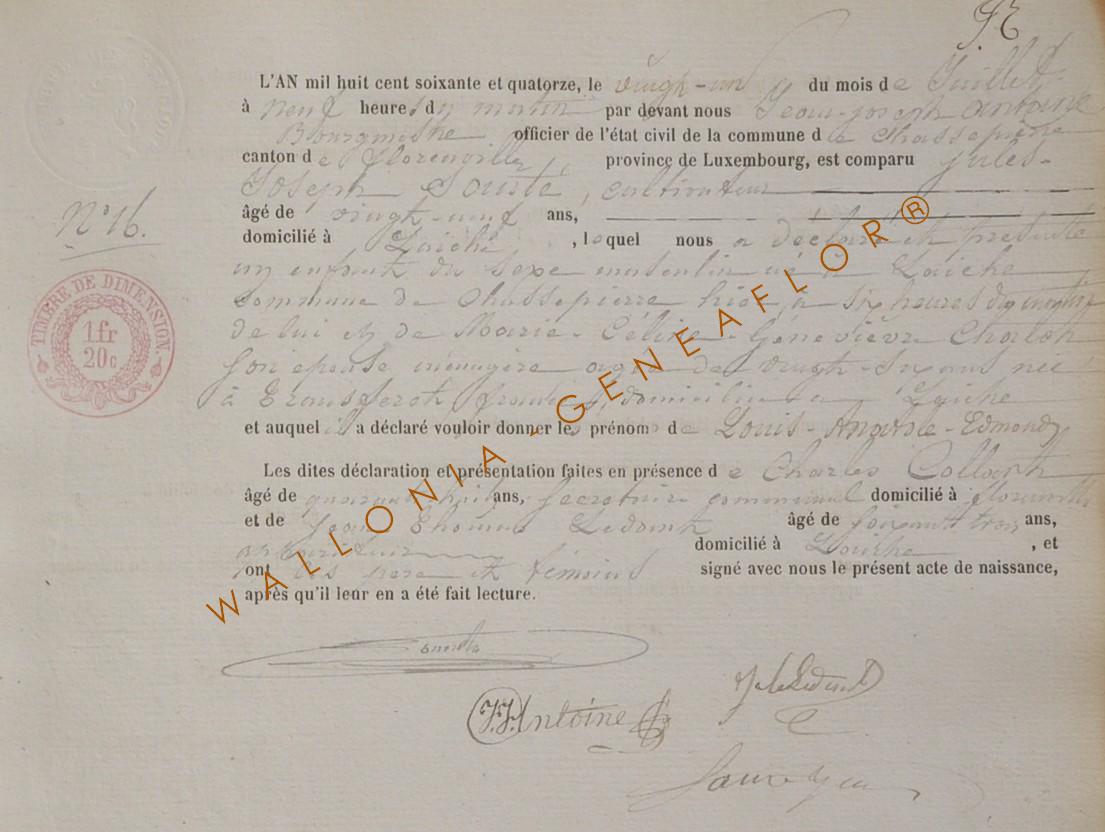 L'AN mil huit cent soixante et quatorze, le vingt-un du mois de Juillet
à neuf heures du matin par devant nous Jean-joseph Antoine
Bourgmestre officier de l'état civil de la commune de Chassepierre
canton de florenville province de Luxembourg, est comparu Jules-
Joseph , cultivateur
N° 16.
âgé de vingt-neuf ans,
domicilié à Laiche , lequel nous a déclaré et présenté
un enfant du sexe masculin né à Laiche
commune de Chassepierre hier à six heures du matin
de lui et de Marie-Céline-Géneviève
son épouse ménagère agée de vingt-six ans née
à domiciliée à Laiche
TIMBRE DE DIMENSION.
1fr
20c
et auquel il a déclaré vouloir donner les prénoms de Louis-Anatole-Edmond
Les dites déclaration et présentation faites en présence de Charles Collart
âgé de quarante huit ans, secrétaire communal domicilié à florenville
et de Jean Thomas Ledoint âgé de soixante trois ans,
domicilié à Laiche , et
ont les père et témoins signé avec nous le présent acte de naissance,
après qu'il leur en a été fait lecture.
J.J. Antoine
WALLONIA-GENEAFLOR®